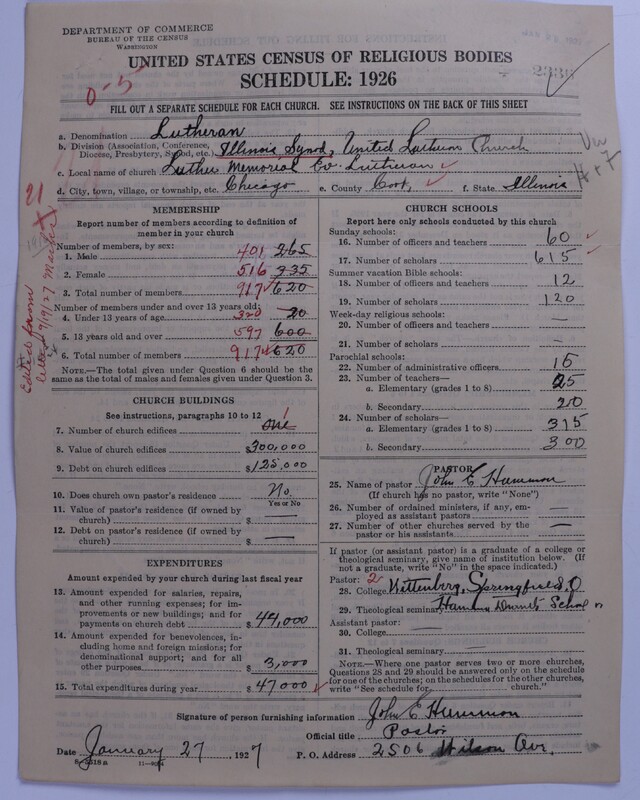 DEPARTMENT OF COMMERCE
BUREAU OF THE CENSUS
WASHINGTON
UNITED STATES CENSUS OF RELIGIOUS BODIES
SCHEDULE: 1926
0-5
FILL OUT A SEPARATE SCHEDULE FOR EACH CHURCH. SEE INSTRUCTIONS ON THE BACK OF THIS SHEET
a. Denomination Lutheran
b. Division (Association, Conference, Diocese, Presbytery, Synod, etc.) Illinois Synod, United Lutheran Church
c. Local name of church Luther Memorial Ev. Lutheran
d. City, town, village, or township, etc. Chicago e. County Cook f. State Illinois
21
Edited from letter 9/19/27
MEMBERSHIP
Report number of members according to definition of member in your church
Number of members, by sex:
1. Male 401 265
2. Female 516 335
3. Total number of members 917 620
Number of members under and over 13 years old:
4. Under 13 years of age 320 20
5. 13 years old and over 597 600
6. Total number of members 917 620
NOTE.—The total given under Question 6 should be the same as the total of males and females given under Question 3.
CHURCH BUILDINGS
See instructions, paragraphs 10 to 12
7. Number of church edifices one 1
8. Value of church edifices $300,000
9. Debt on church edifices $125,000
10. Does church own pastor's residence No.
Yes or No
11. Value of pastor's residence (if owned by church) $ —
12. Debt on pastor's residence (if owned by church) $ —
EXPENDITURES
Amount expended by your church during last fiscal year
13. Amount expended for salaries, repairs, and other running expenses; for improvements or new buildings; and for payments on church debt $ 44,000
14. Amount expended for benevolences, including home and foreign missions; for denominational support; and for all other purposes $ 3,000
15. Total expenditures during year $ 47000
CHURCH SCHOOLS
Report here only schools conducted by this church
Sunday schools:
16. Number of officers and teachers 60
17. Number of scholars 615
Summer vacation Bible schools:
18. Number of officers and teachers 12
19. Number of scholars 120
Week-day religious schools:
20. Number of officers and teachers —
21. Number of scholars —
Parochial schools:
22. Number of administrative officers 15
23. Number of teachers—
a. Elementary (grades 1 to 8) 25
b. Secondary 20
24. Number of scholars—
a. Elementary (grades 1 to 8) 315
b. Secondary 300
PASTOR
25. Name of pastor John E Hummon
(If church has no pastor, write "None")
26. Number of ordained ministers, if any, employed as assistant pastors —
27. Number of other churches served by the pastor or his assistants —
If pastor (or assistant pastor) is a graduate of a college or theological seminary, give name of institution below. (If not a graduate, write "No" in the space indicated.)
Pastor: 2
28. College Wittenberg, Springfield, O
29. Theological seminary Hamma Divinity School
Assistant pastor:
30. College —
31. Theological seminary —
NOTE.—Where one pastor serves two or more churches, Questions 28 and 29 should be answered only on the schedule for one of the churches; on the schedules for the other churches, write "See schedule for church."
Signature of person furnishing information John E Hummon
Official title Pastor
Date January 27, 1927 P. O. Address 2506 Wilson Ave.